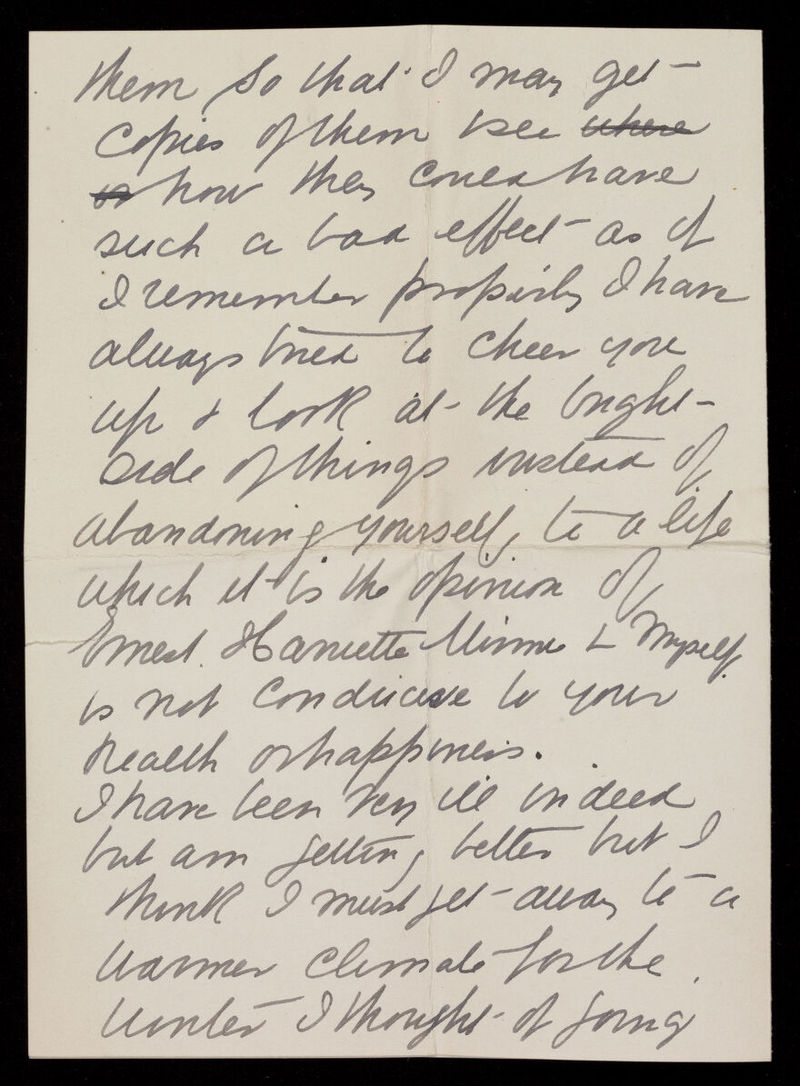 them so that I may get
copies of them & see where
is how they could have
such a bad effect as if
I remember properly I have
always tried to cheer you
up & look at the bright
side of things instead of
abandoning yourself, to a life
which it is the opinion of
Ernest. Harriette Minnie & Myself
is not conducive to your
health or happiness.
I have been very ill indeed
but am getting better but I
think I must get away to a
warmer climate for the
winter I thought of going